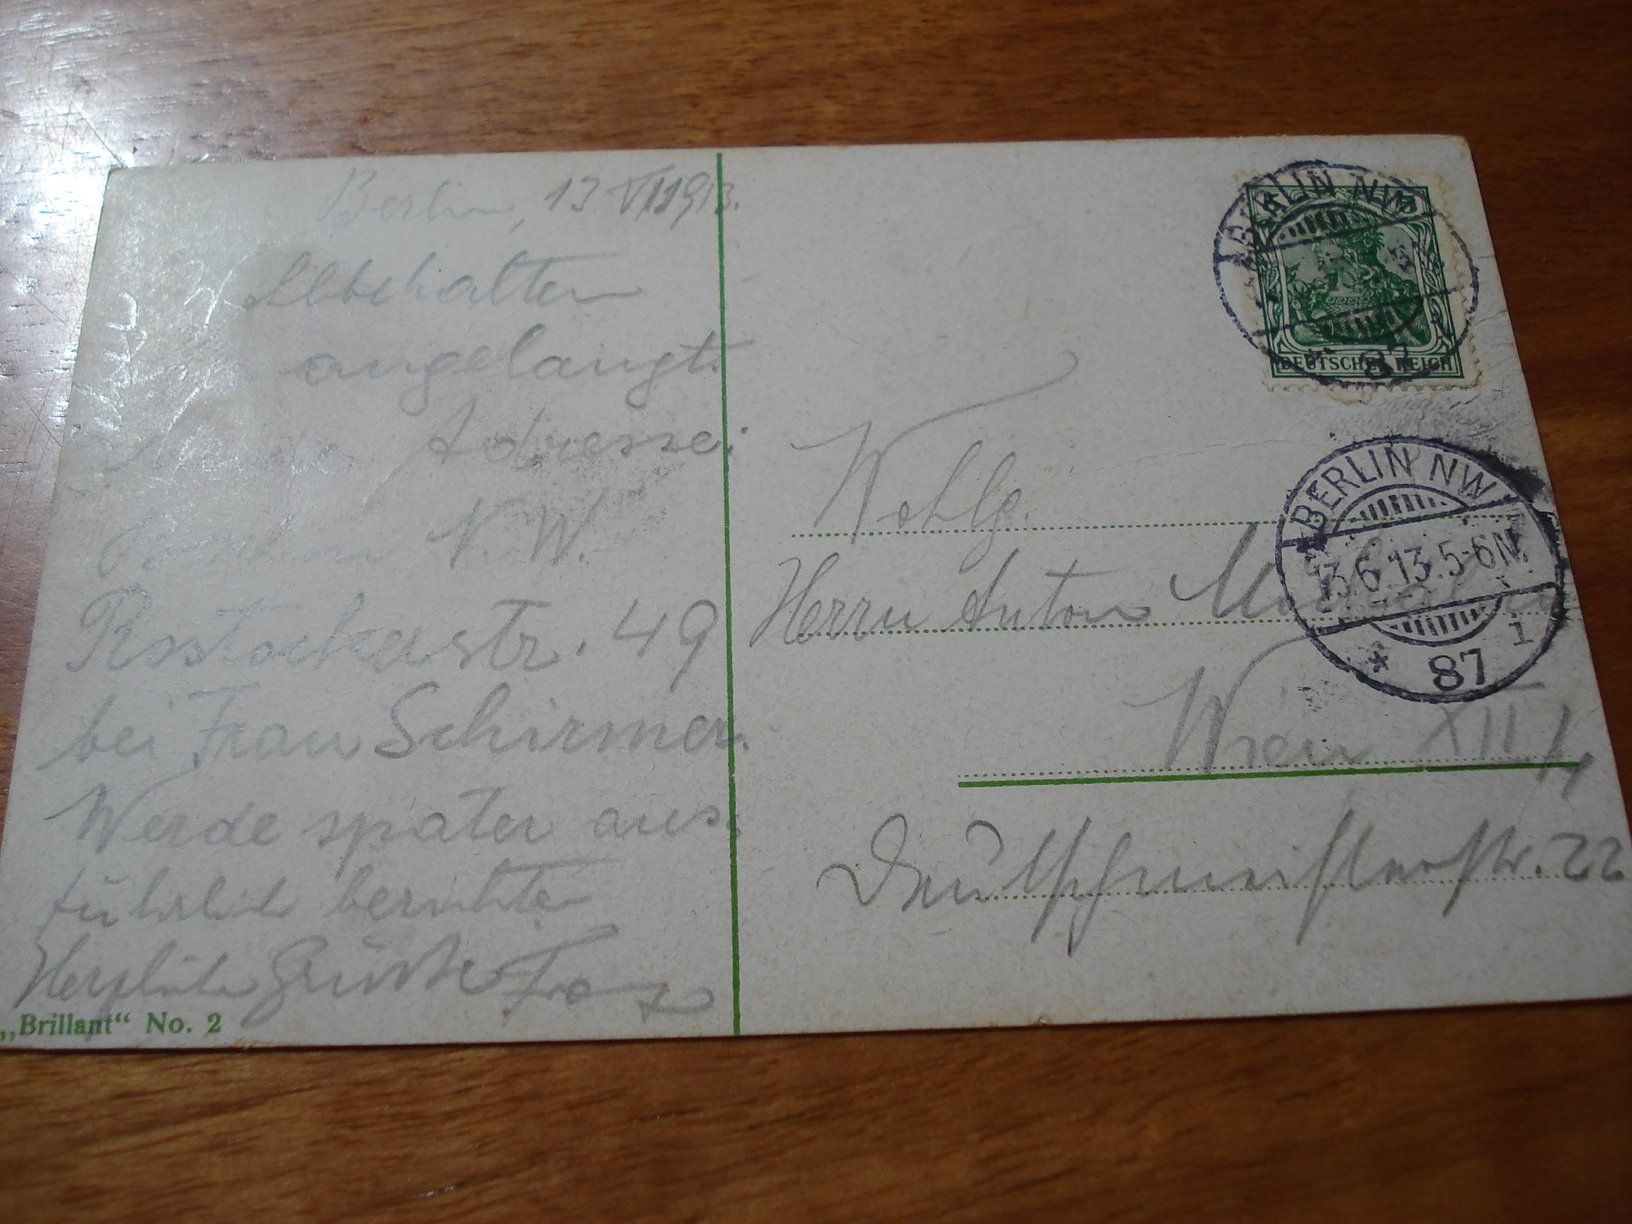 Berlin, 13. VI 1913.
angelangt.
Adresse:
N. W.
Rostockerstr. 49
bei Frau Schirmer.
Werde später aus-
führlich berichten
Herzliche Grüsse Franz
„Brillant“ No. 2
BERLIN NW
87
DEUTSCHES REICH
BERLIN NW
13.6.13.5-6N.
* 87 i
Wohlg.
Herrn Anton
Wien XII/4
Deutschmeisterstr. 22